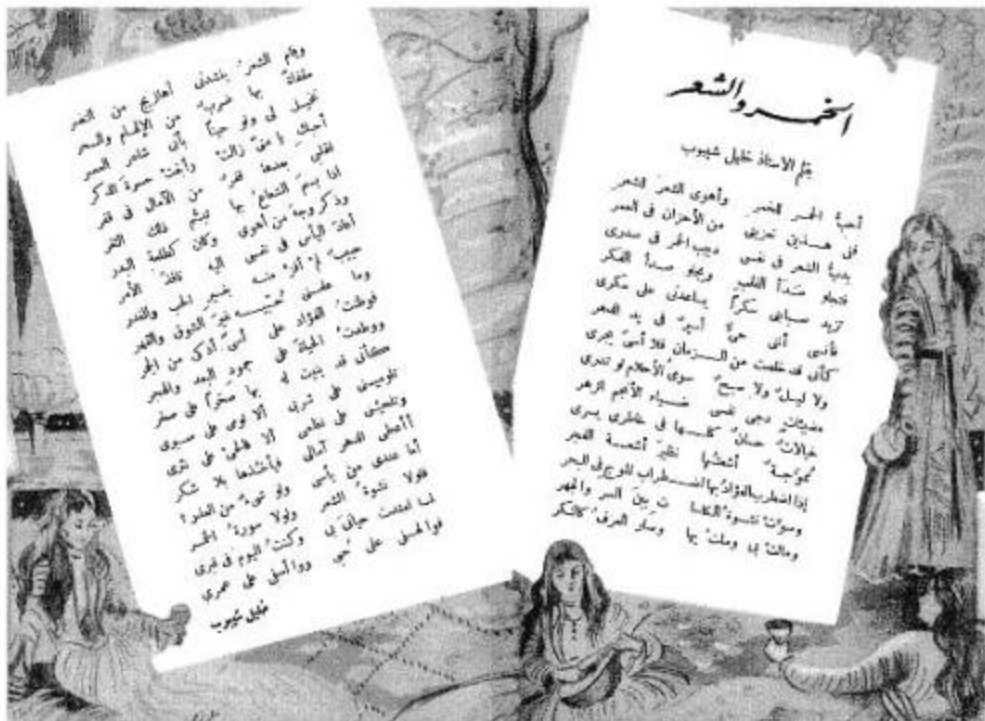 الخمر والشعر
بقلم الأستاذ خليل شيبوب
أحبُّ الخمر للخمر وأهوى الشعر للشعر
فى هذين تعزيتى من الأحزان فى العمر
يدبُّ الشعر فى نفسى دبيب الخمر فى صدرى
فتجلو صدأ القلب ويجلو صدأ الفكر
تزيد صبابتى سكراً يساعدنى على سكرى
فأنسى أننى حىٌّ أسيرٌ فى يد الدهر
كأنى قد خلصت من الزمان فلا أسىً يجرى
ولا ليلٌ ولا صبحٌ سوى الأحلام لو تدرى
مضيئات دجى نفسى ضياء الأنجم الزهر
خيالات حسان كلها فى خاطرى يسرى
مموّجة أشعتها نظير أشعة الفجر
إذا اضطرب الفؤاد بها اضطراب الموج فى البحر
وسوّت نشوة الكاسا ت بين السر والجهر
ومالت بى وملت بها وصار العرف كالنكر
وقام الشعر ينشدنى أهازيج من
بها ضرب من الإلهام والسحر
تخيل لى ولو حيناً بأنى شاعر العصر
أحنّ زالت حسرة الذكر
من الآمال فى قفر
إذا بسم الشعاع بها تبسّم ذلك الثغر
وذكر وجه من أهوى وكان كطلعة البدر
اليأس فى نفسى إليه نافذ الأمر
حبيب لم أفز منه بغير الحب والغدر
وما غير الشوق والقهر
الفؤاد على أسىً أذكى من الجمر
الحياة على جمود البعد والهجر
كأنى قد بنيت له بها صخراً على صخر
على شربى ألا لومى على صبرى
على نظمى ألا على نثرى
أأعطى الدهر آمالى فيأخذها بلا شكر
أما عندى من يأسى ولو شىء من العذر؟
فلولا نشوة الشعر ولولا سورة الخمر
لما امتدت حياتى بى وكنت اليوم فى قبرى
فوالهفى على حبى ووا أسفى على عمرى
خليل شيبوب